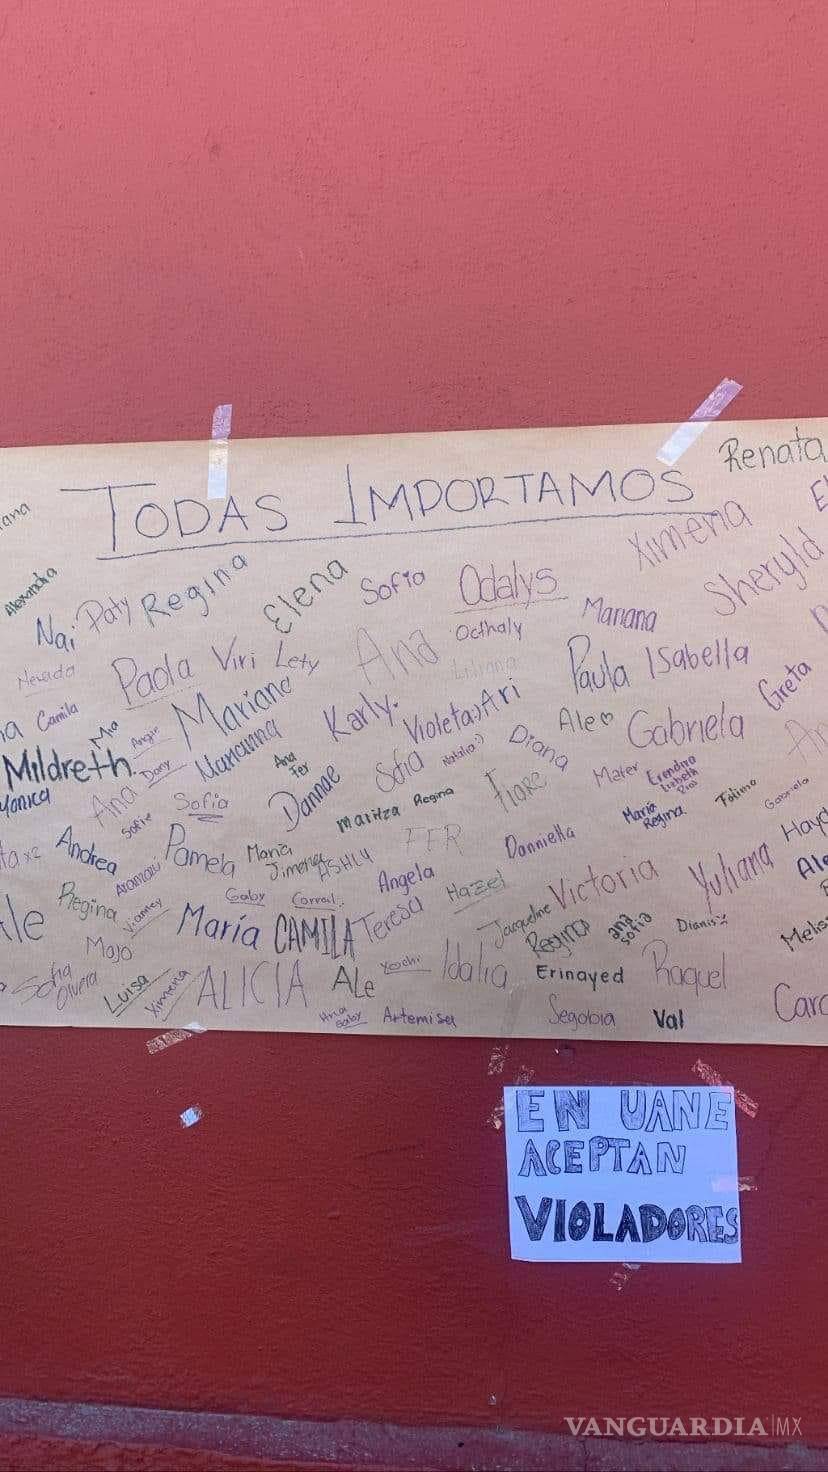 Renata
TODAS IMPORTAMOS
Ximena
Alexandra
Nai Paty Regina Elena Sofia Odalys
Mariana
Sheryld
Nevada
Paola Viri Lety Ana Octhaly
Liliana
Paula ISabella
Greta
Camila
Mia
Angie
Mariana Karly. Violeta:) Ari
Ale Gabriela
Mildreth.
Dany
Marianna
Ana
Fer
Dannae Sofia Natalia:) Diana
Monica
Ana
Sofia
Sofia
Maritza Regina
Mater
Erendira
Lizbeth
María
Regina
Gabriela
Andrea
Pamela
María
Jimena
ASHLY
FER
Danniella
Yuliana
Angela
Hazel
Victoria
Regina
Vianney
Gaby
María CAMILA Teresa
Jacqueline
Regina
ana
sofia
Majo
Sofia
Olvera
Luisa
Ximena
ALICIA ALe
Xochi
Idalia
Erinayed
Raquel
Ana
Gaby
Artemisa
Segobia
Val
EN UANE
ACEPTAN
VIOLADORES
VANGUARDIA|MX